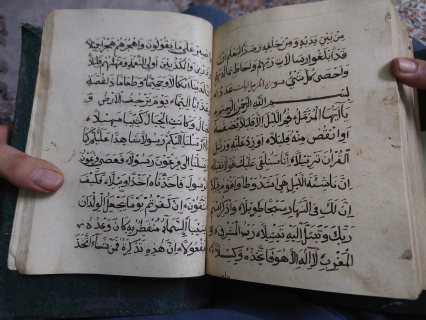 من بين يديه ومن خلفه رصدا ليعلم ان
قد ابلغوا رسالات ربهم واحاط بما لديهم
واحصى كل شيء عددا
بسم الله الرحمن الرحيم
يا ايها المزمل قم الليل الا قليلا نصفه
او انقص منه قليلا او زد عليه ورتل
القران ترتيلا انا سنلقي عليك قولا ثقيلا
ان ناشئة الليل هي اشد وطا واقوم قيلا
ان لك في النهار سبحا طويلا واذكر اسم
ربك وتبتل اليه تبتيلا رب المشرق و
المغرب لا اله الا هو فاتخذه وكيلا و
اصبر على ما يقولون واهجرهم هجرا جميلا
وذرني والمكذبين اولي النعمة ومهلهم قليلا
ان لدينا انكالا وجحيما وطعاما ذا غصة
وعذابا اليما يوم ترجف الارض و
الجبال وكانت الجبال كثيبا مهيلا انا
ارسلنا اليكم رسولا شاهدا عليكم كما
ارسلنا الى فرعون رسولا فعصى فرعون
الرسول فاخذناه اخذا وبيلا فكيف
تتقون ان كفرتم يوما يجعل الولدان
شيبا السماء منفطر به كان وعده
مفعولا ان هذه تذكرة فمن شاء اتخذ